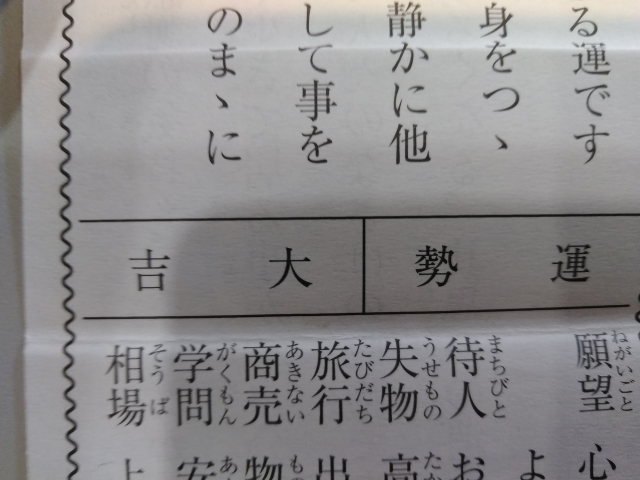 る運です
身をつゝ
静かに他
して事を
のまゝに
運勢
大吉
願望
ねがいごと
心
よ
待人
まちびと
お
失物
うせもの
高
たか
旅行
たびだち
出
商売
あきない
物
もの
学問
がくもん
安
相場
そうば
上